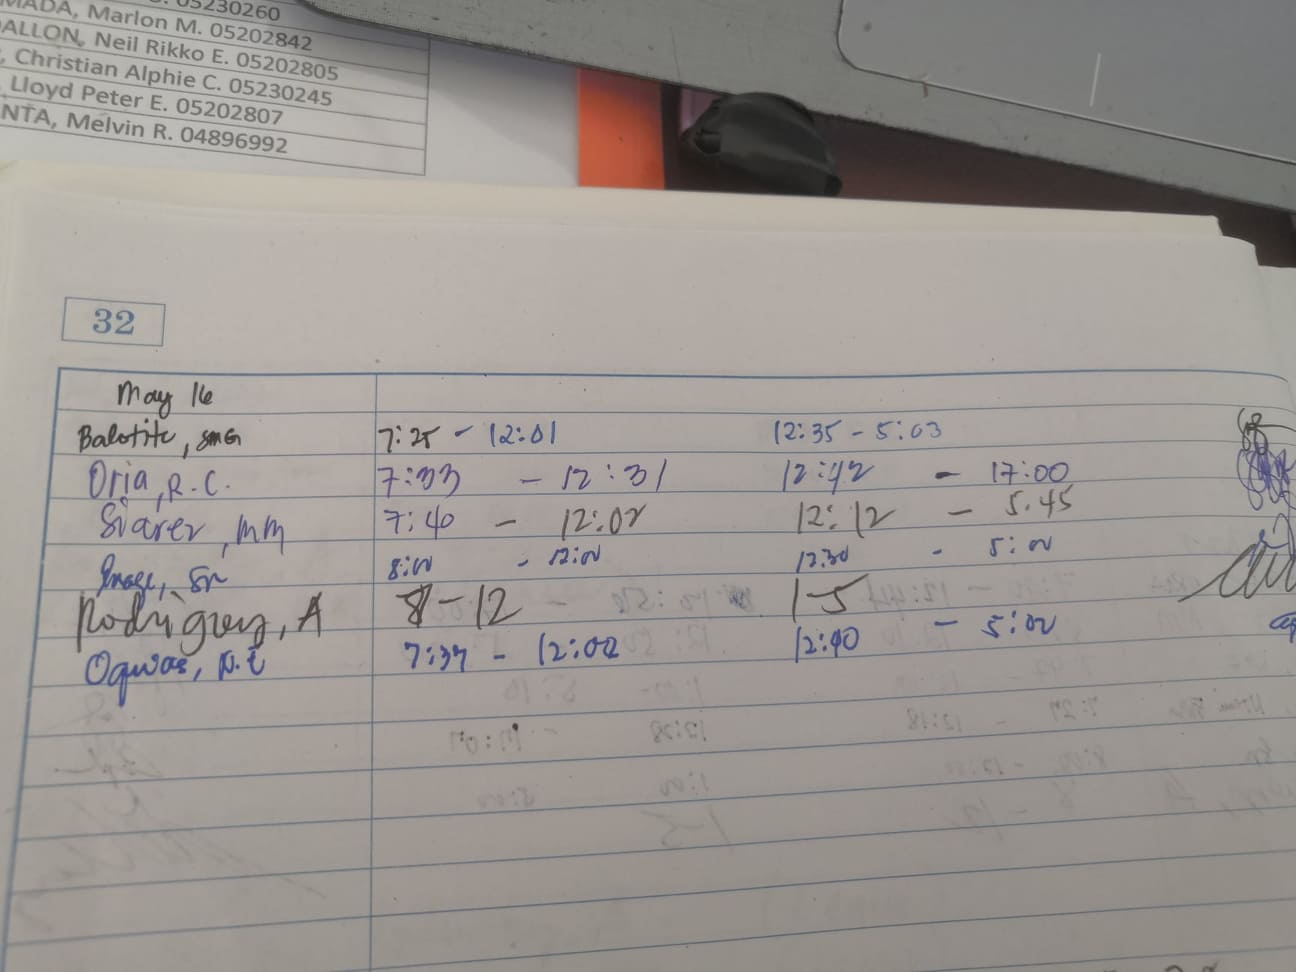 05230260
MADA, Marlon M. 05202842
DALLON, Neil Rikko E. 05202805
, Christian Alphie C. 05230245
, Lloyd Peter E. 05202807
NTA, Melvin R. 04896992
32
May 16
Balotite, SMG 7:25 - 12:01 12:35 - 5:03
Oria, R.C. 7:33 - 12:31 12:42 - 17:00
Siarez, MM 7:40 - 12:02 12:12 - 5.45
8:00 - 12:00 12:30 - 5:00
Rodriguez, A 8-12 1-5
7:37 - 12:02 12:40 - 5:02